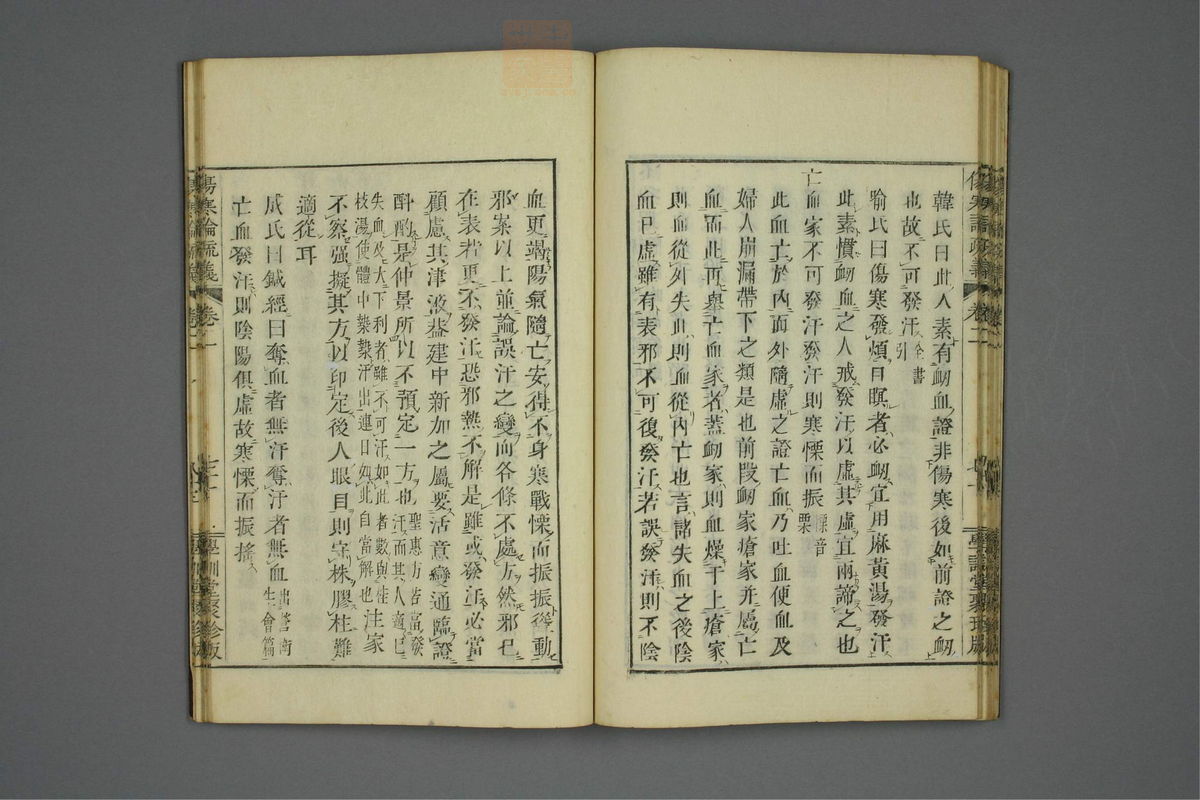 韓氏曰此人素有衂血證非傷寒後如前證之衂
也故不可發汗全書引
喻氏曰傷寒發煩目瞑者必衂宜用麻黃湯發汗
此素慣衂血之人戒發汗以虛其虛宜兩諦之也
亡血家不可發汗發汗則寒慄而振慄音栗
此血亡於內而外隨虛之證亡血乃吐血便血及
婦人崩漏帶下之類是也前段衂家瘡家并屬亡
血而此再擧亡血家者蓋衂家則血燥于上瘡家
則血從外失此則血從內亡也言諸失血之後陰
血已虛雖有表邪不可復發汗若誤發汗則不陰
血更竭陽氣隨亡安得不身寒戰慄而振振聳動
邪案以上並論誤汗之變而各條不處方然邪已
在表若更不發汗恐邪熱不解是雖或發汗必當
顧慮其津液葢建中新加之屬要活意變通臨證
酙酌是仲景所以不預定一方也聖惠方若當發汗而其人適已
失血及大下利者雖不可汗如此者數與桂枝湯使體中漐漐汗出連日如此自當解也注家
不察强擬其方以印定後人眼目則守株膠柱難
適從耳
成氏曰鍼經曰奪血者無汗奪汗者無血出營衛生會篇
亡血發汗則陰陽俱虛故寒慄而振搖
傷寒論疏義
卷二
學訓堂聚珍版